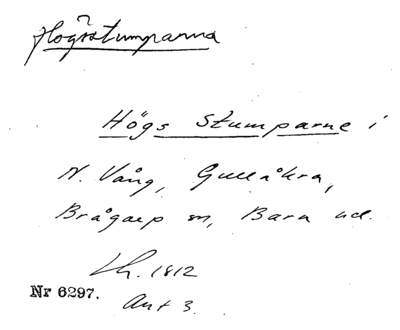 Högsstumparna
Högs Stumparne i
N. Vång, Gullåkra,
Brågarp sn, Bara hd.
Lh. 1812
Nr 6297. Akt 3.